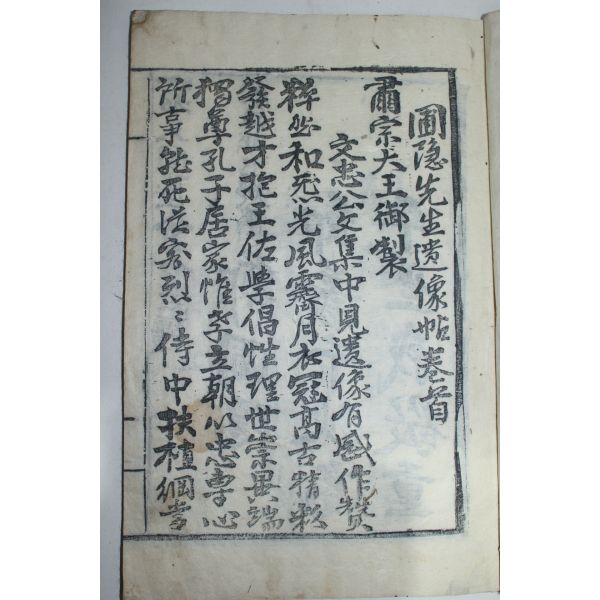 圃隐先生遺像帖卷首
肅宗大王御製
文忠公文集中見遺像有感作賛
粹然和煕光風霽月衣冠高古精彩
發越才抱王佐學倡性理世崇異端
獨尊孔子居家惟孝立朝以忠專心
所事能死從容烈〻侍中扶植綱常